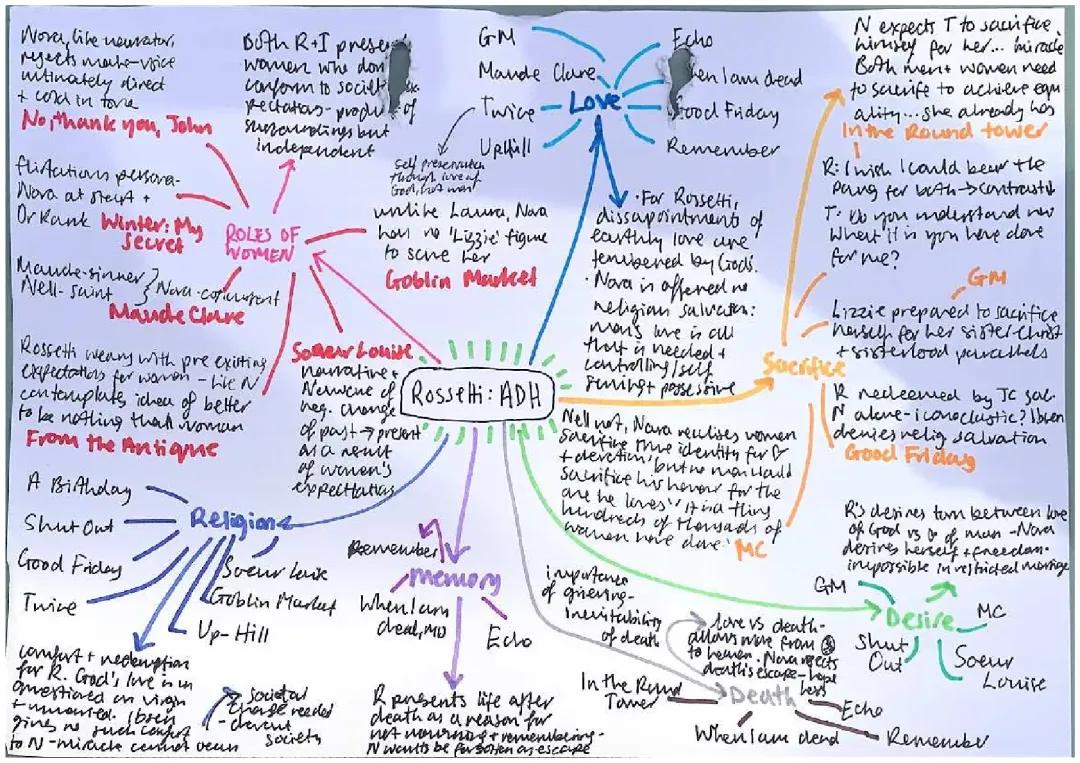 Nora, like narrator,
rejects male voice
ultimately direct
+ cold in tone
No, thank you, John
Both R+I present
women who don
conform to societ
pectations - produ
surroundings but
independent
flirtatious persona -
Nora at start +
Dr Rank Winter: My
Secret
ROLES OF
WOMEN
Maude - sinner
Nell - saint
Nora - concurrent
Maude Clare
Rossetti weary with pre existing
expectations for women - like N
contemplates idea of better
to be nothing than woman
From the Antique
Soeur Louise
narrative +
N
neg. change
of past → present
as a result
of women's
expectations
self preservation
through love of
God, not man
unlike Laura, Nora
has no 'Lizzie' figure
to save her
Goblin Market
GM
Maude Clare
Twice
Uphill
Love
Echo
hen I am dead
Good Friday
Remember
· For Rossetti,
dissapointments of
earthly love are
tempered by God's.
· Nora is offered no
religious salvation:
man's love is all
that is needed +
controlling/self
+ possessive
Rossetti: ADH
N expects T to sacrifice
himself for her... miracle
Both men + women need
to sacrifice to achieve equ
ality... she already has
In the Round tower
R: I wish I could bear the
pang for both → contrast
T: Do you understand
what it is you have done
for me?
GM
Lizzie prepared to sacrifice
herself for her sister - Christ
+ sisterhood parallels
Sacrifice
R redeemed by JC sac
N alone - iconoclastic? Ibsen
denies relig salvation
Good Friday
Nell not, Nora realises women
sacrifice true identity for
+ devotion 'but no man would
sacrifice his honour for the
one he loves' 'it is a thing
hundreds of thousands of
women have done.' MC
A Birthday
Shut Out
Good Friday
Twice
Religion
Soeur Louise
Goblin Market
Up-Hill
comfort + redemption
for R. God's love is un
questioned on virgin
+ unmarried. Ibsen
gives no such comfort
to N - miracle cannot occur
societal
change needed
society
Remember
Memory
When I am
dead, MD
Echo
R presents life after
death as a reason for
not mourning + remembering -
N wants to be forgotten as escape
importance
of grieving -
inevitability
of death
love vs death -
allows move from
to heaven. Nora rejects
death's escape - hope
less
In the Round
Tower
Death
Echo
When I am dead
Remember
R's desires torn between love
of God vs of man - Nora
desires herself + freedom -
impossible in restricted marriage
GM
Desire
MC
Shut
Out
Soeur
Louise